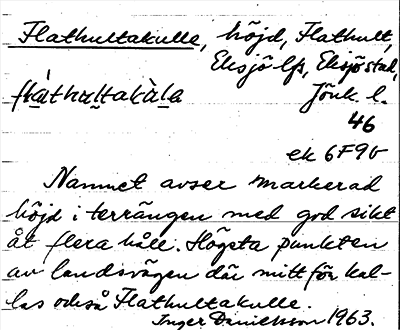 Flathultakulle, höjd, Flathult,
Eksjö lfs, Eksjö stad,
Jönk. l.
46
ek 6F9b
Namnet avser markerad
höjd i terrängen med god sikt
åt flera håll. Högsta punkten
av landsvägen där mitt för kal-
las också Flathultakulle.
Inger Danielsson 1963.